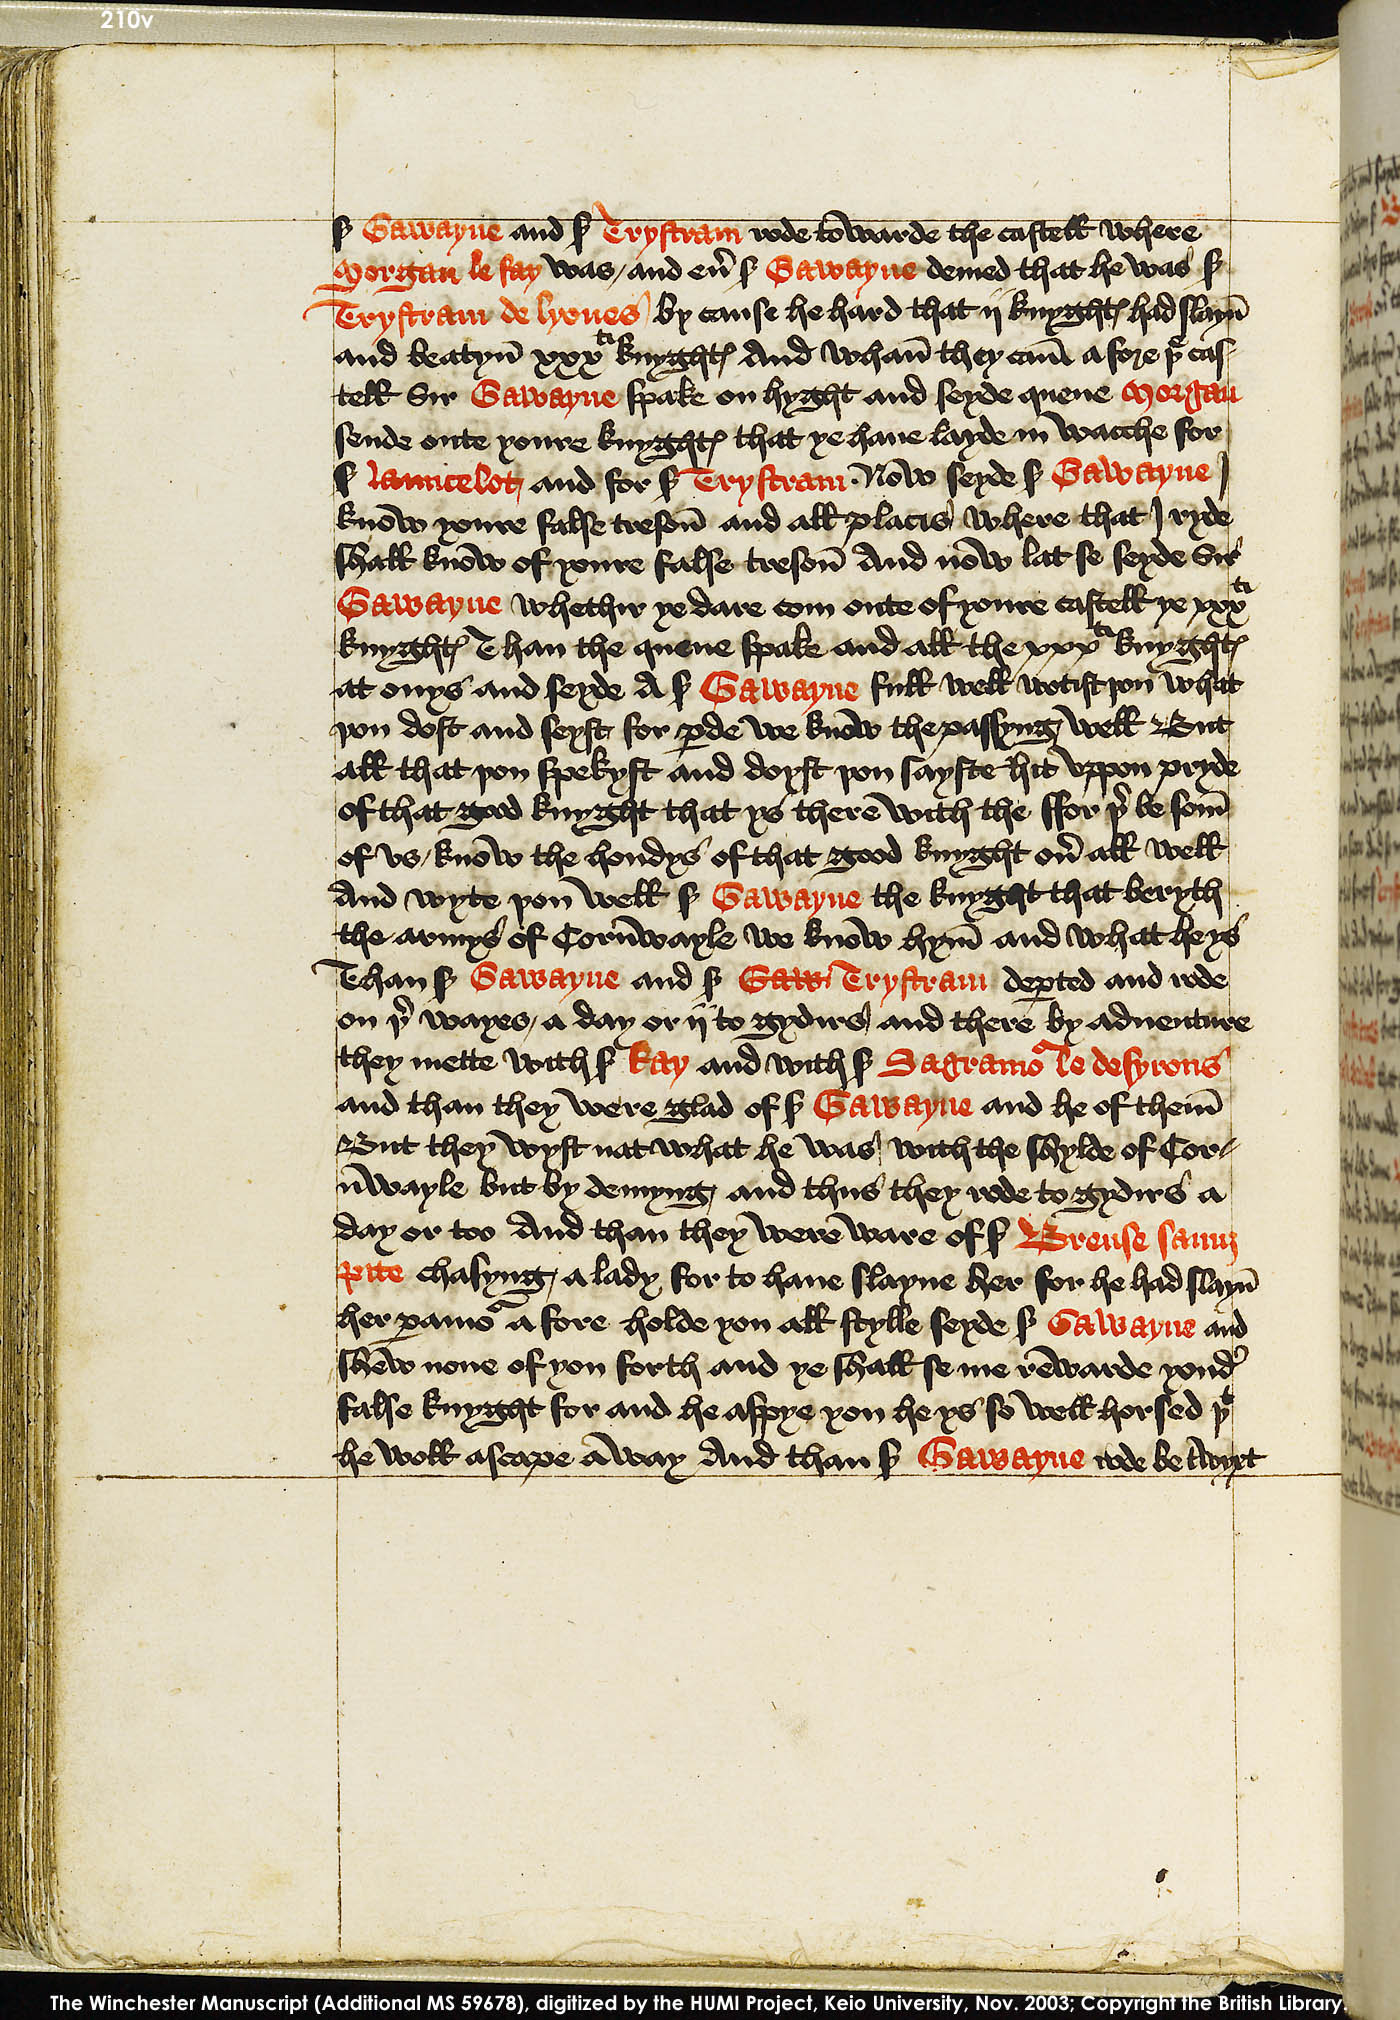 210v
ẜ Gawayne and ẜ Trystram rode towarde the castell where
Morgan le fay was / and eũ ẜ Gawayne demed that he was ẜ
Trystram de lyones by cause he hard that ij knyghtꝭ had slayn̄
and beatyn̄ xxxti knyghtꝭ And whan̄ they cam̄ a fore þe cas-
tell Sir Gawayne spake on hyght and seyde quene Morgan
sende oute youre knyghtꝭ that ye haue layde in wacche for
ẜ launcelot and for ẜ Trystram. Now seyde ẜ Gawayne I
know youre false treson̄ and all placis where that I ryde
shall know of youre false treson̄ And now lat se seyde Sir
Gawayne whethir ye dare com oute of youre castell ye xxxti
knyghtꝭ Than the quene spake and all the xxxti knyghtꝭ
at onys and seyde A ẜ Gawayne full well wotist þou what
þou dost and seyst for ꝑde we know the passyng well But
all that þou spekyst and doyst þou sayste hit vppon pryde
of that good knyght that ys there with the ffor þr be som̄
of vs / know the hondys of that good knyght oũ all well
And wyte þou well ẜ Gawayne the knyght that beryth
the armys of Corn̄wayle we know hym̄ and what he ys
Than ẜ Gawayne and ẜ Gaw Trystram deꝑted and rode
on þr wayes / a day or ij to gydirs and there by aduenture
they mette with ẜ kay and with ẜ Sagramor le desyrous
and than they were glad of ẜ Gawayne and he of them̄
But they wyst nat what he was with the shylde of Cor-
n̄wayle but by demyng and thus they rode to gydirs a
day or too And than they were ware of ẜ Breuse saunz
pite chasyng a lady for to haue slayne her for he had slayn̄
her ꝑamor a fore holde you all stylle seyde ẜ Gawayne and
shew none of you forth and ye shall se me rewarde yondr
false knyght for and he aspye you he ys so well horsed þt
he woll ascape away And than ẜ Gawayne rode be twyxt
The Winchester Manuscript (Additional MS 59678), digitized by the HUMI Project, Keio University, Nov. 2003; Copyright the British Library.